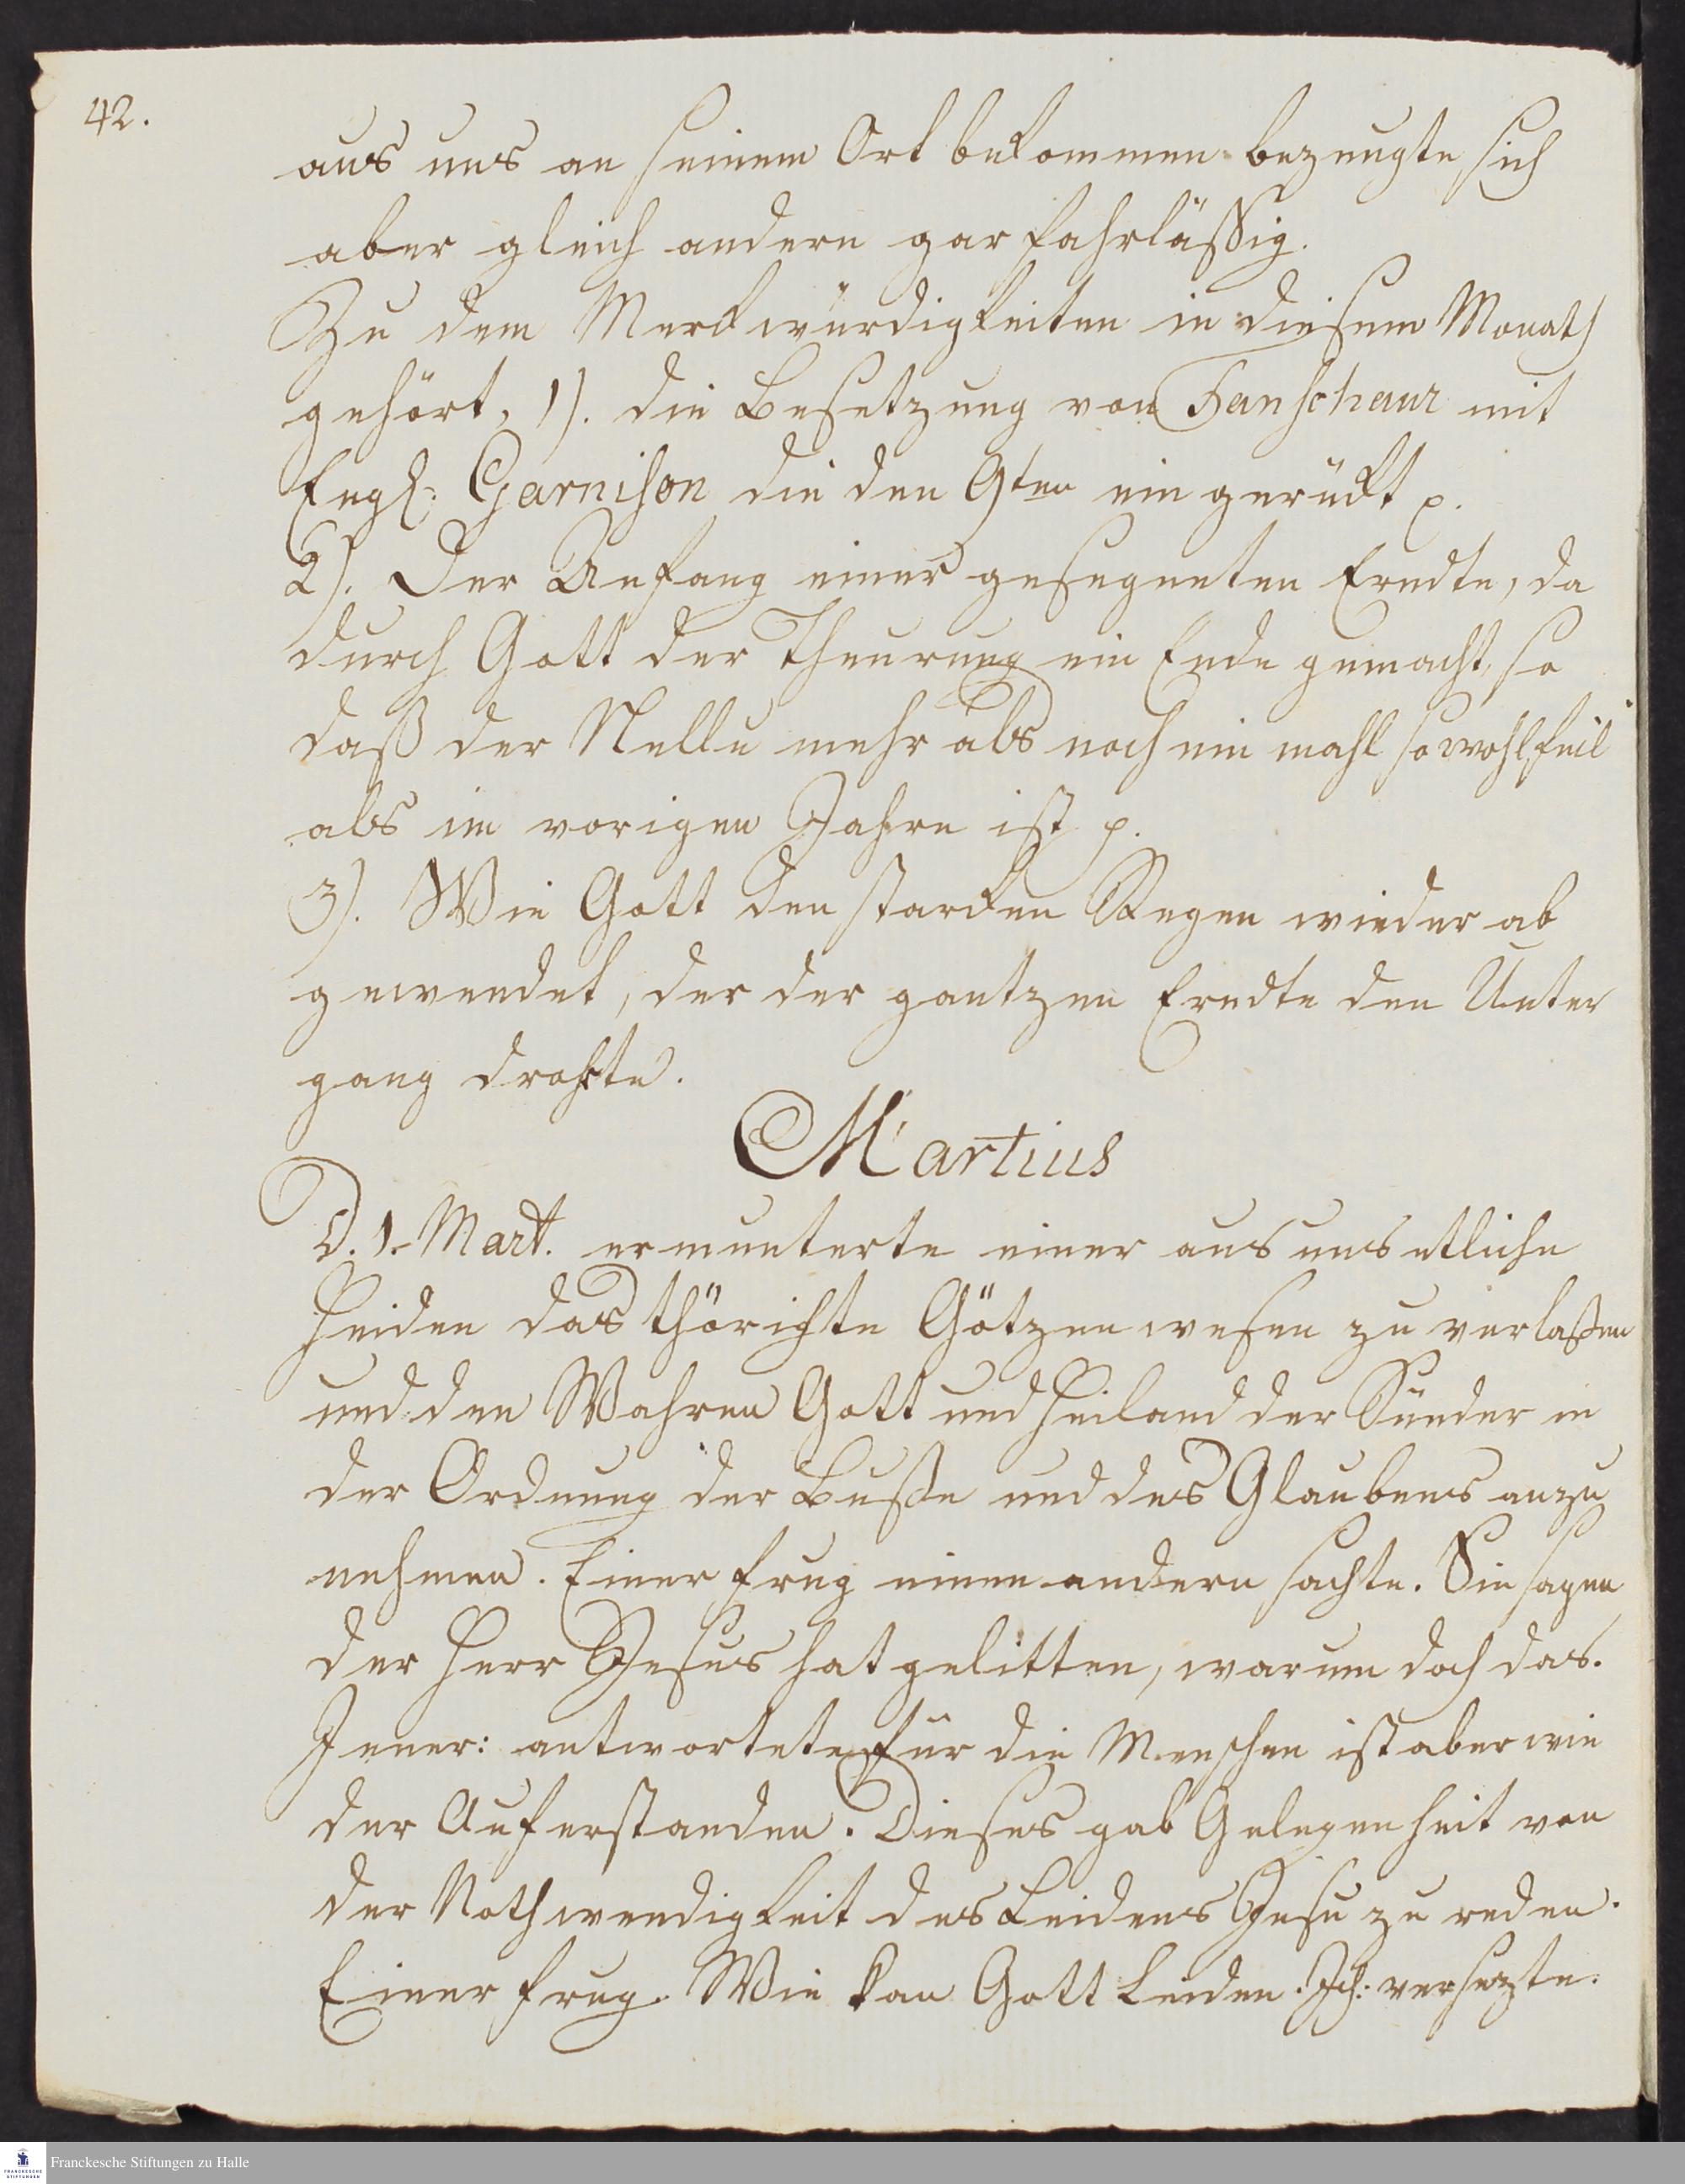 42.
aus uns an seinem Ort bekommen bezeugte sich
aber gleich andern gar fahrläßig.
Zu dem Merckwürdigkeiten in diesem Monath
gehört, 1). die Besetzung von Tanschaur mit
Engl: Garnison die den 9ten ein gerückt p.
2). Der Anfang einer gesegneten Erndte, da
durch Gott der Theurung ein Ende gemacht, so
daß der Nellu mehr als noch ein mahl so wohlfeil
als im vorigen Jahre ist p.
3). Wie Gott den starcken Regen wieder ab
gewendet, der der gantzen Erndte den Unter
gang drohte.
Martius
D. 1. Mart. ermunterte einer aus uns etliche
Heiden das thörichte Götzen wesen zu verlaßen
und den Wahren Gott und Heiland der Sünder in
der Ordnung der Buße und des Glaubens anzu
nehmen. Einer frug einen andern sachte. Sie sagen
der Herr Jesus hat gelitten, warum doch das.
Jener: antwortete für die Menschen ist aber wie
der Auferstanden. Dieses gab Gelegenheit von
der Nothwendigkeit des Leidens Jesu zu reden.
Einer frug. Wie kan Gott Leiden. Ich: versezte.
Franckesche Stiftungen zu Halle
FRANCKESCHE
STIFTUNGEN